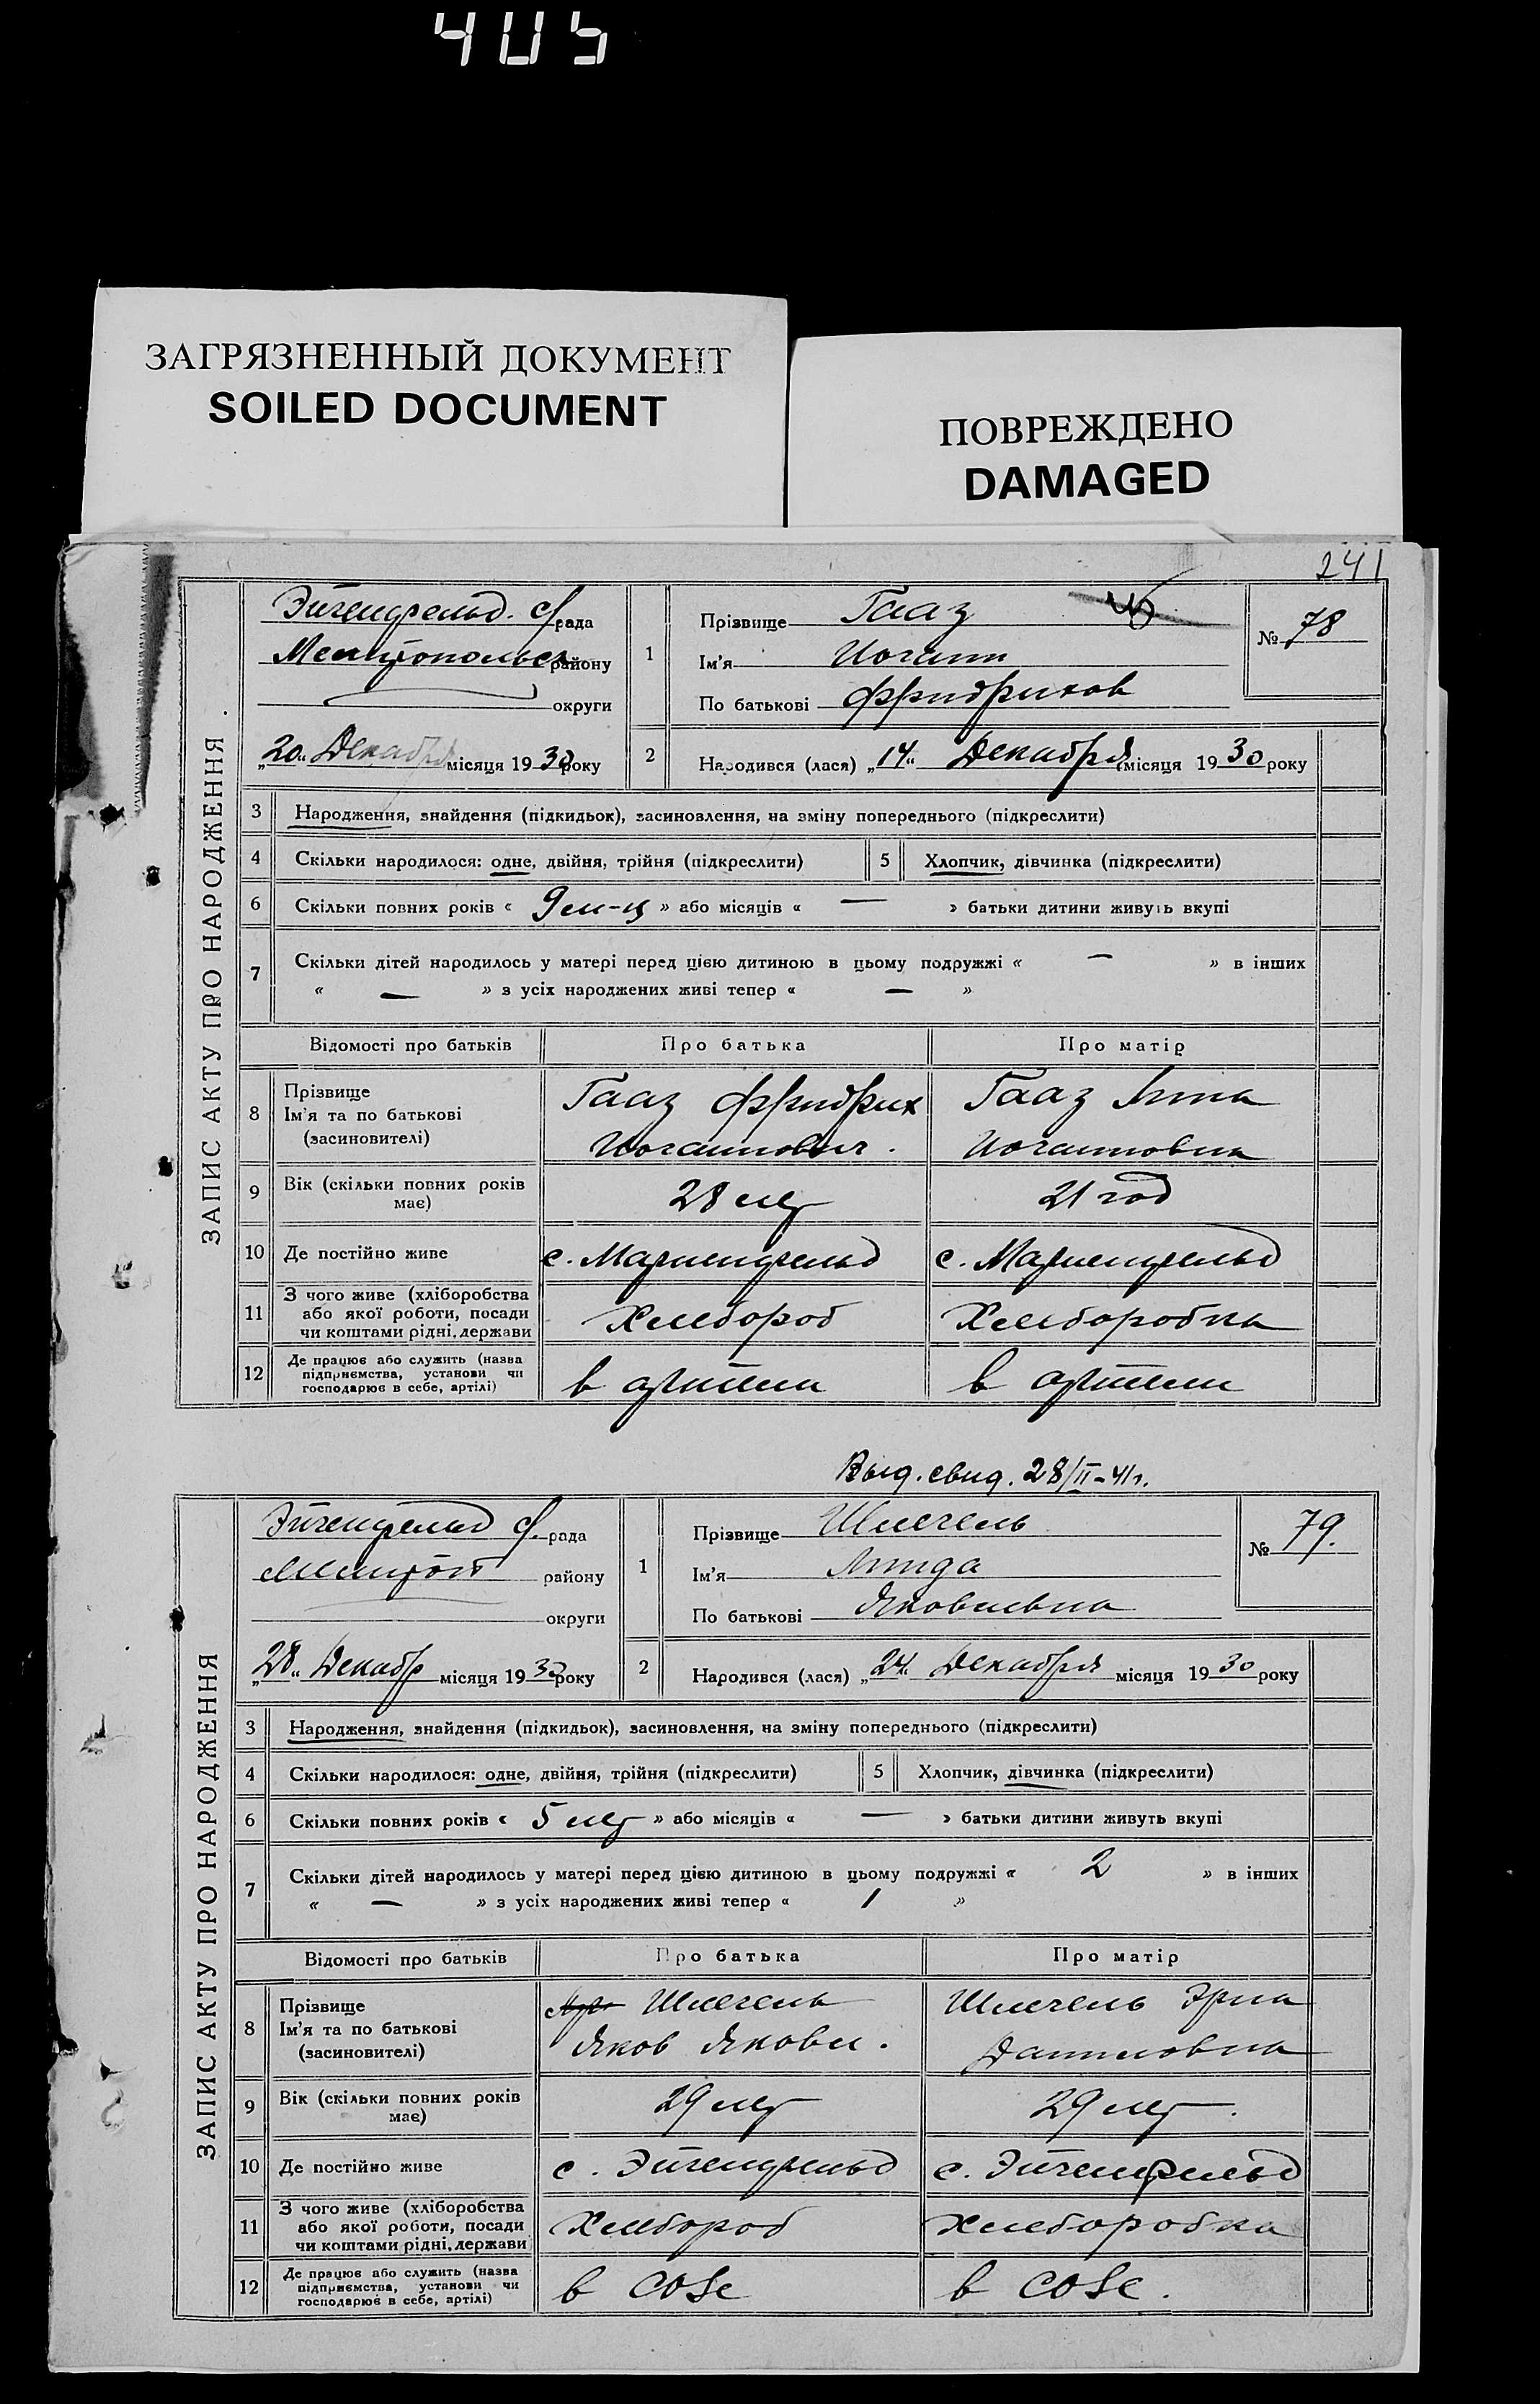 405
ЗАГРЯЗНЕННЫЙ ДОКУМЕНТ
SOILED DOCUMENT
ПОВРЕЖДЕНО
DAMAGED
241
ЗАПИС АКТУ ПРО НАРОДЖЕННЯ
Эйгенфельд. с/рада
Мелитопольск району
округи
„20“ Декабря місяця 1930 року
1
Прізвище Гааз
Ім'я Иоганн
По батькові Фридрихов
№ 78
2
Народився (лася) „14“ Декабря місяця 1930 року
3 Народження, знайдення (підкидьок), засиновлення, на зміну попереднього (підкреслити)
4 Скільки народилося: одне, двійня, трійня (підкреслити) 5 Хлопчик, дівчинка (підкреслити)
6 Скільки повних років « 9 м-ц » або місяців « — » батьки дитини живуть вкупі
7 Скільки дітей народилось у матері перед цією дитиною в цьому подружжі « — » в інших
« — » з усіх народжених живі тепер « — »
Відомості про батьків Про батька Про матір
8 Прізвище
Ім'я та по батькові
(засиновителі)
Гааз Фридрих
Иоганнович.
Гааз Анна
Иоганновна
9 Вік (скільки повних років
має)
28 лет 21 год
10 Де постійно живе с. Мариенфельд с. Мариенфельд
11 З чого живе (хліборобства
або якої роботи, посади
чи коштами рідні, держави
Хлебороб Хлеборобка
12 Де працює або служить (назва
підприємства, установи чи
господарює в себе, артілі)
в артели в артели
Выд. свид. 28/II-41г.
ЗАПИС АКТУ ПРО НАРОДЖЕННЯ
Эйгенфельд с/рада
Мелитоп району
округи
„28“ Декабр місяця 1930 року
1
Прізвище Шлегель
Ім'я Линда
По батькові Яковлевна
№ 79.
2
Народився (лася) „24“ Декабря місяця 1930 року
3 Народження, знайдення (підкидьок), засиновлення, на зміну попереднього (підкреслити)
4 Скільки народилося: одне, двійня, трійня (підкреслити) 5 Хлопчик, дівчинка (підкреслити)
6 Скільки повних років « 5 лет » або місяців « — » батьки дитини живуть вкупі
7 Скільки дітей народилось у матері перед цією дитиною в цьому подружжі « 2 » в інших
« — » з усіх народжених живі тепер « 1 »
Відомості про батьків Про батька Про матір
8 Прізвище
Ім'я та по батькові
(засиновителі)
Шлегель
Яков Яковл.
Шлегель Эрна
Данииловна
9 Вік (скільки повних років
має)
29 лет 29 лет.
10 Де постійно живе с. Эйгенфельд с. Эйгенфельд
11 З чого живе (хліборобства
або якої роботи, посади
чи коштами рідні, держави
Хлебороб Хлеборобка
12 Де працює або служить (назва
підприємства, установи чи
господарює в себе, артілі)
в СОЗе в СОЗе.